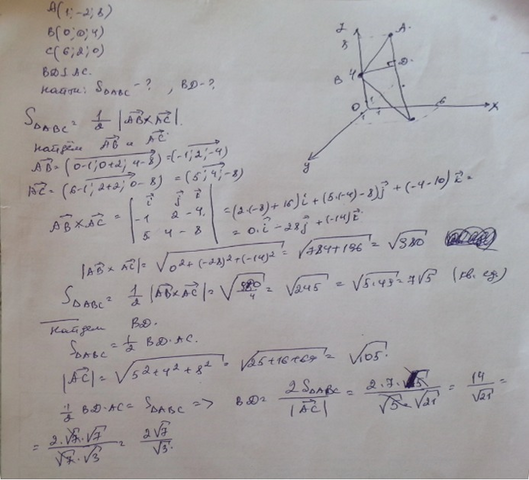 A(1;-2;8)
B(0;0;4)
C(6;2;0)
BD⊥AC.
найти: S△ABC-? , BD-?
S△ABC = 1/2 |AB×AC|.
Найдём AB и AC.
AB = (0-1;0+2;4-8) = (-1;2;-4)
AC = (6-1;2+2;0-8) = (5;4;-8)
AB×AC = | i j i ; -1 2 -4 ; 5 4 -8 | = (2·(-8)+16)i + (5·(-4)-8)j + (-4-10)i =
= 0·i - 28j + (-14)i.
|AB×AC| = √(0²+(-28)²+(-14)²) = √(784+196) = √980
S△ABC = 1/2 |AB×AC| = √(980/4) = √245 = √(5·49) = 7√5 (кв. ед)
Найдём BD.
S△ABC = 1/2 BD·AC.
|AC| = √(5²+4²+8²) = √(25+16+64) = √105.
1/2 BD·AC = S△ABC => BD = 2S△ABC/|AC| = 2·7·√5/(√5·√21) = 14/√21 =
= 2·√7·√7/(√7·√3) = 2√7/√3.
z
8
A
B 4
D
O
1
6
x
y